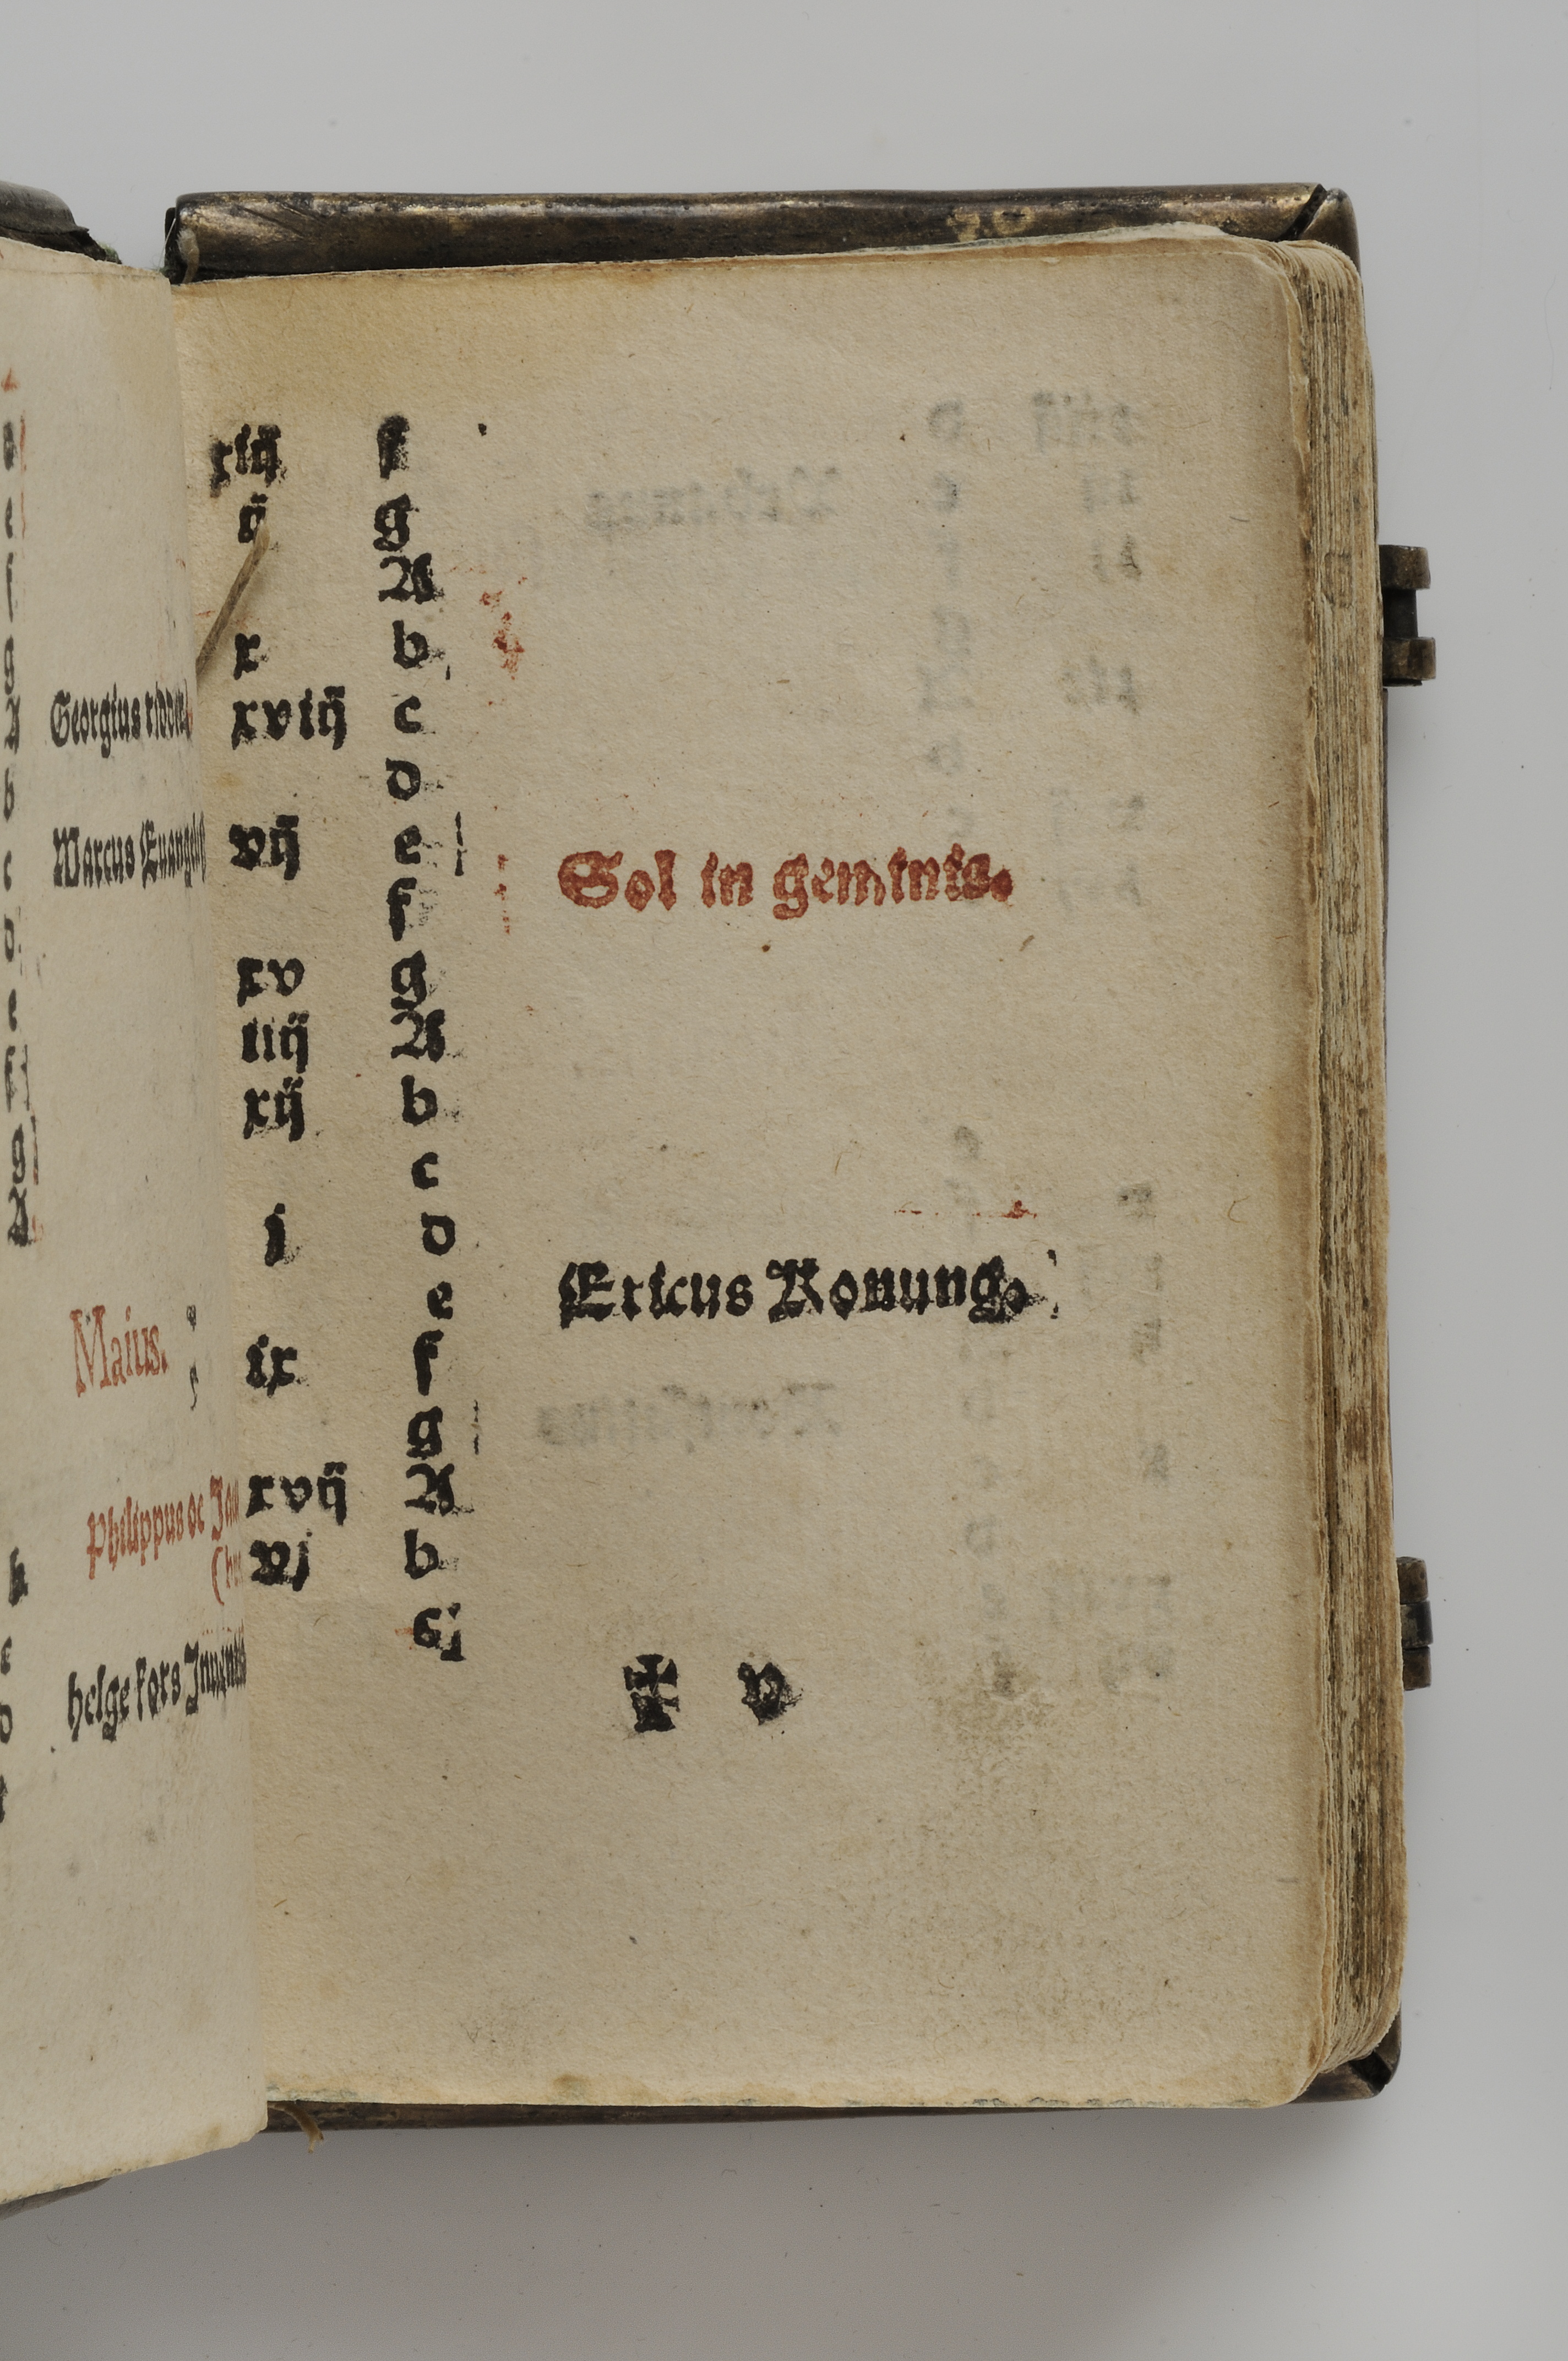 Georgius ridder
Marcus Euangelis
Maius.
Philippus oc Jac
helge kors Inuent
xiij f
ij g
A
x b
xviij c
d
vij e
f
Sol in geminis.
xv g
iiij A
xij b
c
j d
e
Ericus Konung.
ix f
g
xvij A
vj b
c
✠ v